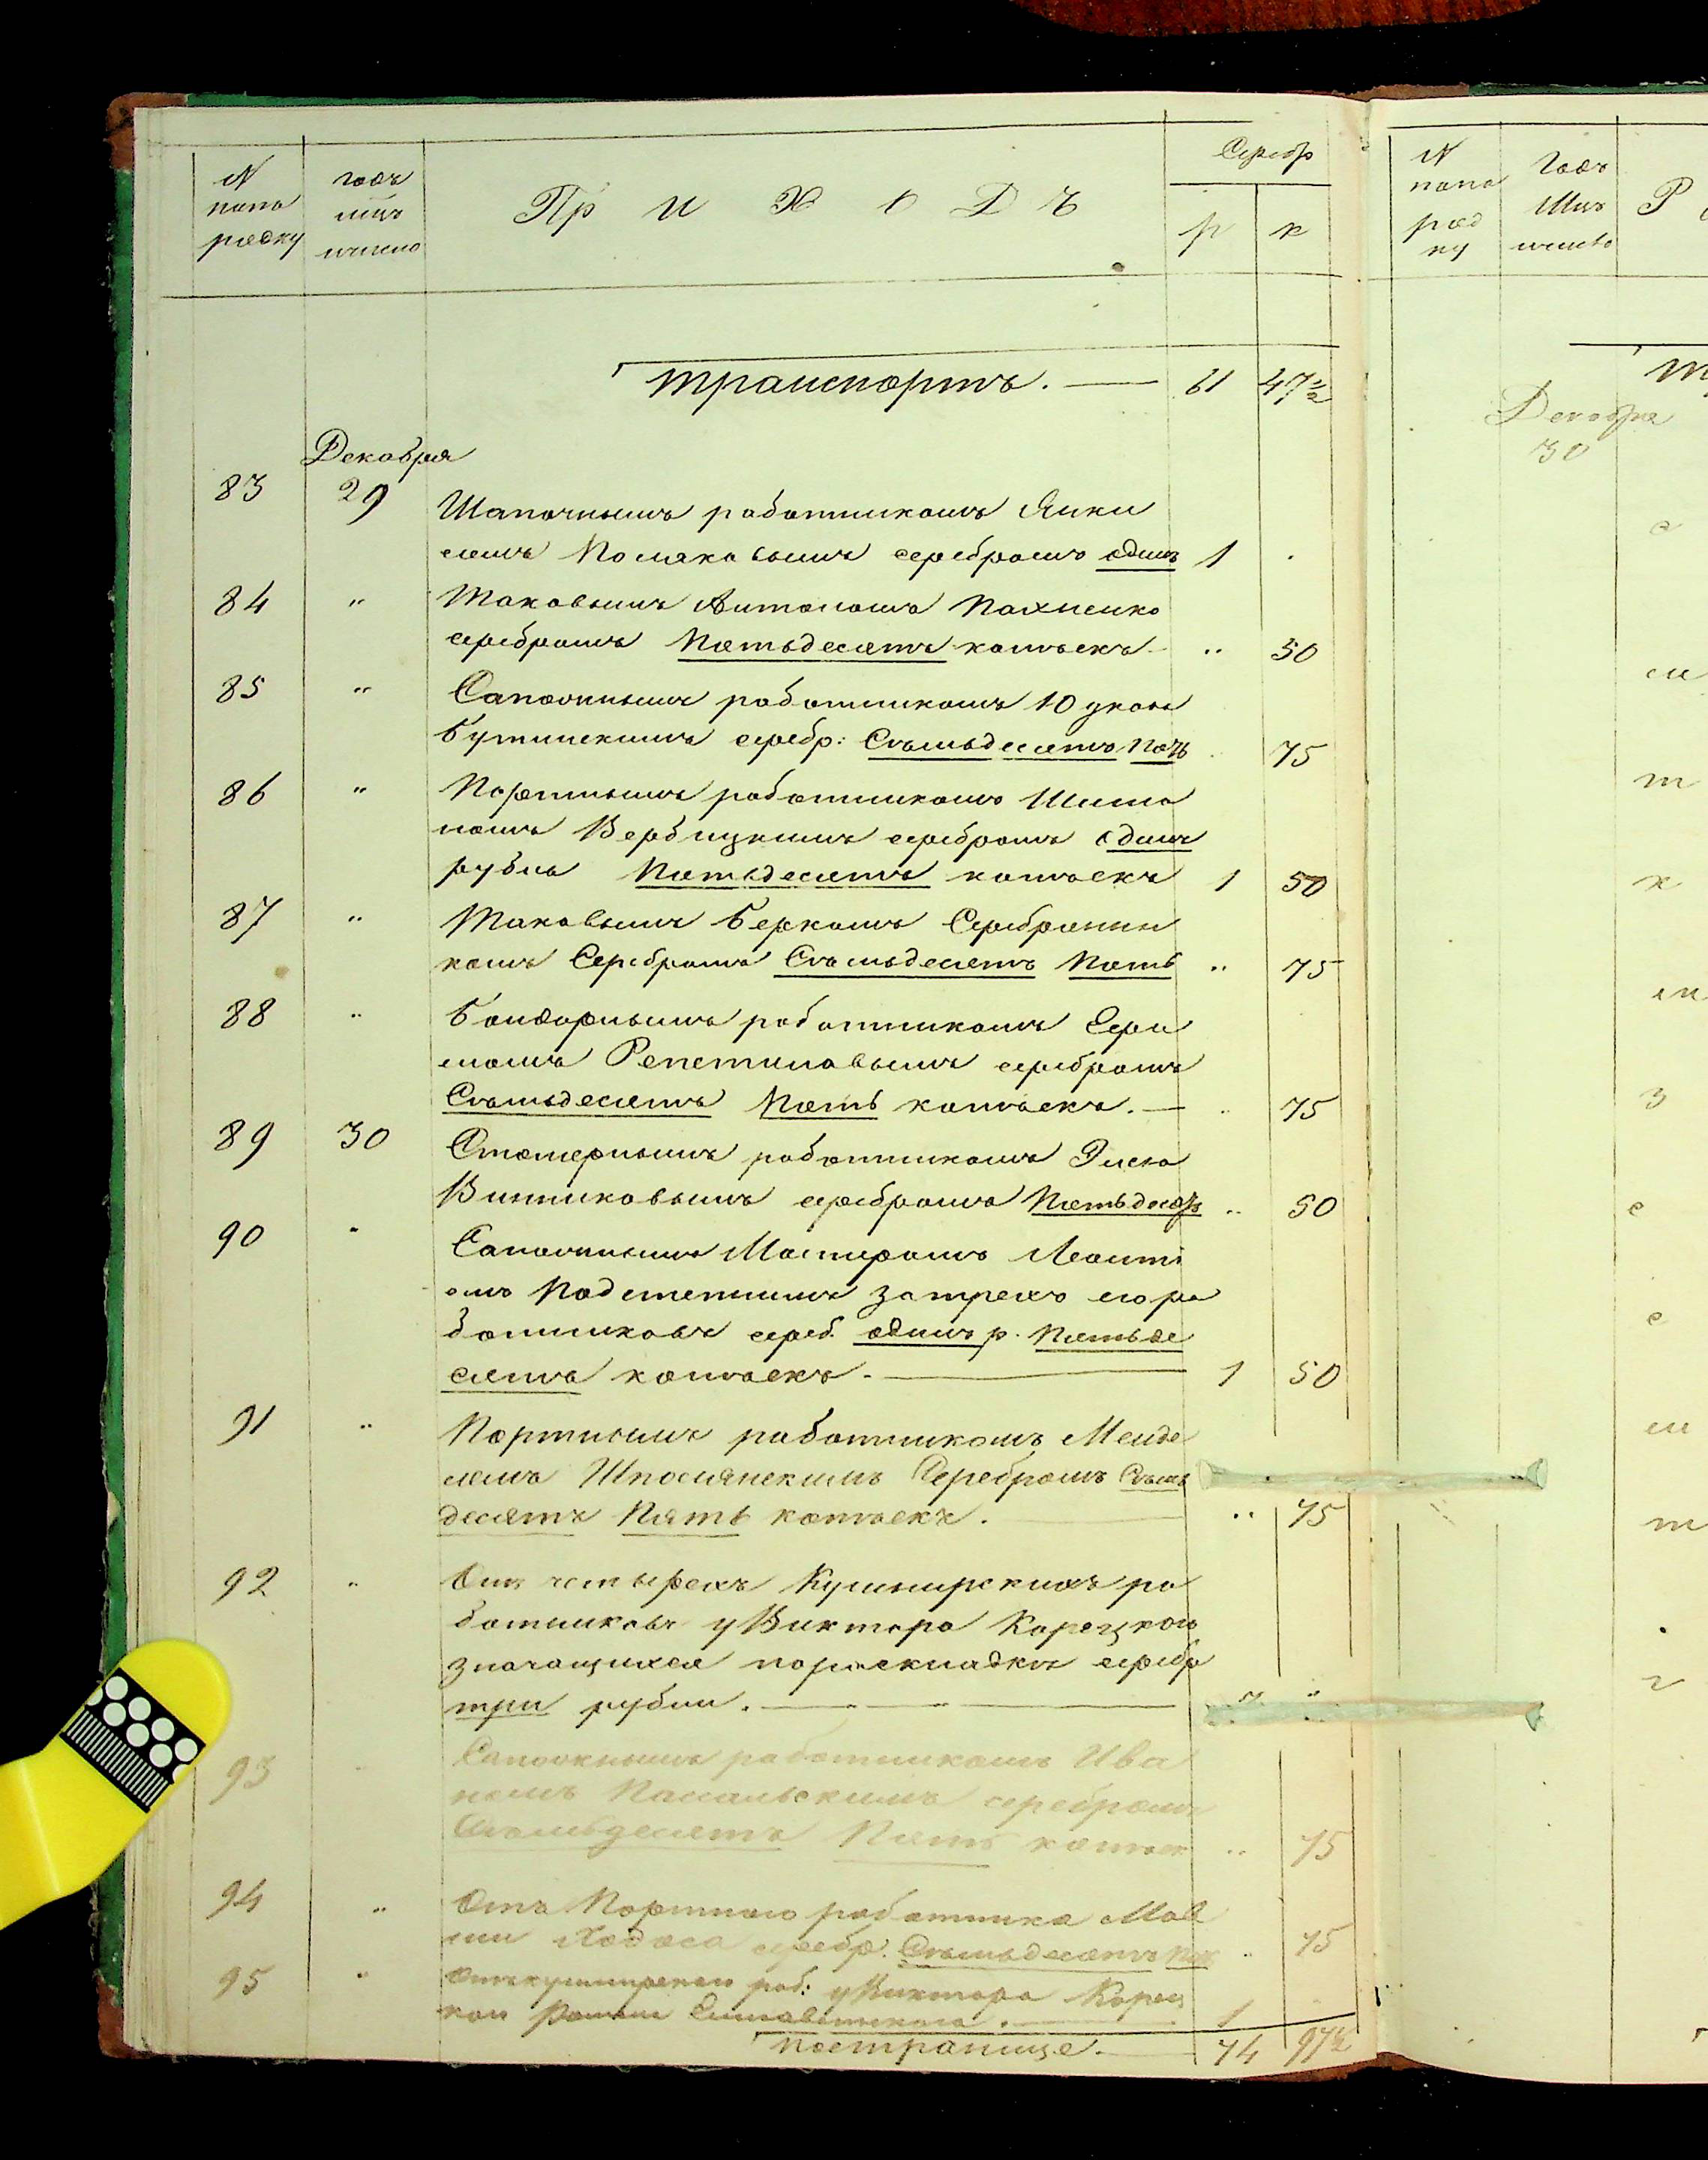 N попо рядку
годъ мцъ и число
Приходъ
Серебр
р к
Транспортъ. — 61 47½
Декабря
83 29 Шапочнымъ работникомъ Янки
елемъ Поляковымъ серебромъ одинъ 1 .
84 " Таковымъ Антономъ Пахненко
серебромъ Пятьдесятъ копѣекъ .. 50
85 " Сапожнымъ работникомъ
Бутинскимъ серебр: Съмьдесятъ Пять . 75
86 " Портнымъ работникомъ Шимо
номъ Вербицкимъ серебромъ одинъ
рубль Пятьдесятъ копѣекъ 1 50
87 " Таковымъ Беркомъ Серебрянни
комъ Серебромъ Съмьдесятъ Пять .. 75
88 " Бондарнымъ работникомъ
Репетиловымъ серебромъ
Съмьдесятъ Пять копѣекъ. — .. 75
89 30 Столярнымъ работникомъ
Винниковымъ серебромъ Пятьдесятъ .. 50
90 " Сапожнымъ Мастеромъ Леонті
емъ за трехъ его ра
ботниковъ сереб. одинъ р. Пятьде
сятъ копѣекъ. — 1 50
91 " Портнымъ работникомъ Менде
лемъ Шполянскимъ Серебромъ Съмь
десятъ Пять копѣекъ. — .. 75
92 " Отъ четырехъ Кушнирскихъ ра
ботниковъ у Виктора Корецкого
значащихся по раскладкѣ серебр
три рубли. — 3 "
93 Сапожнымъ работникомъ Ива
номъ серебромъ
Съмьдесятъ Пять копѣек .. 75
94 " Отъ Портного работника Мов
ши Ходоса серебр. Съмьдесятъ Пять .. 75
95 " Отъ кушнирского раб: у Виктора Корец
кого 1
Постранице. — 74 97½
N попо ряд ку
Годъ Мцъ и число
Р
Декабря
30